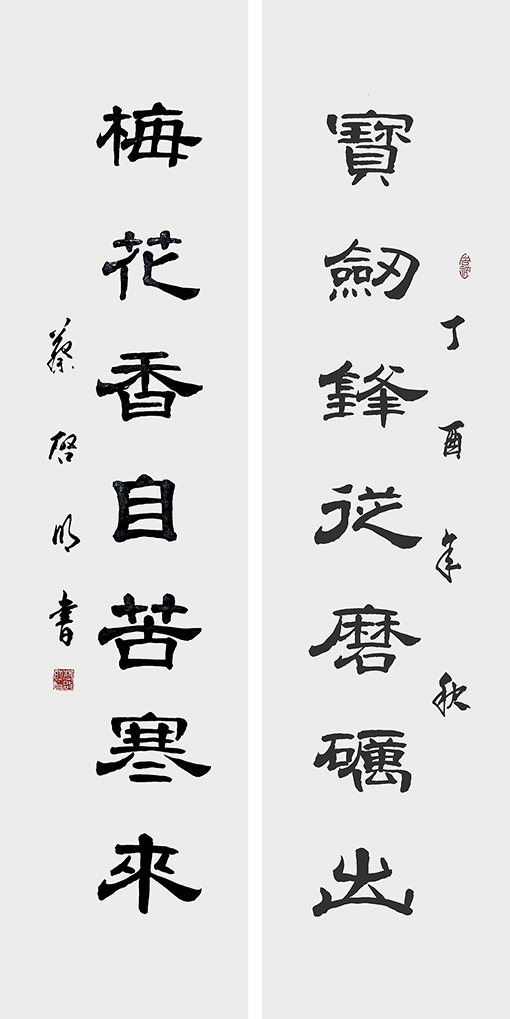 丁酉年秋
寶劔鋒從磨礪出
梅花香自苦寒來
蔡啓明書